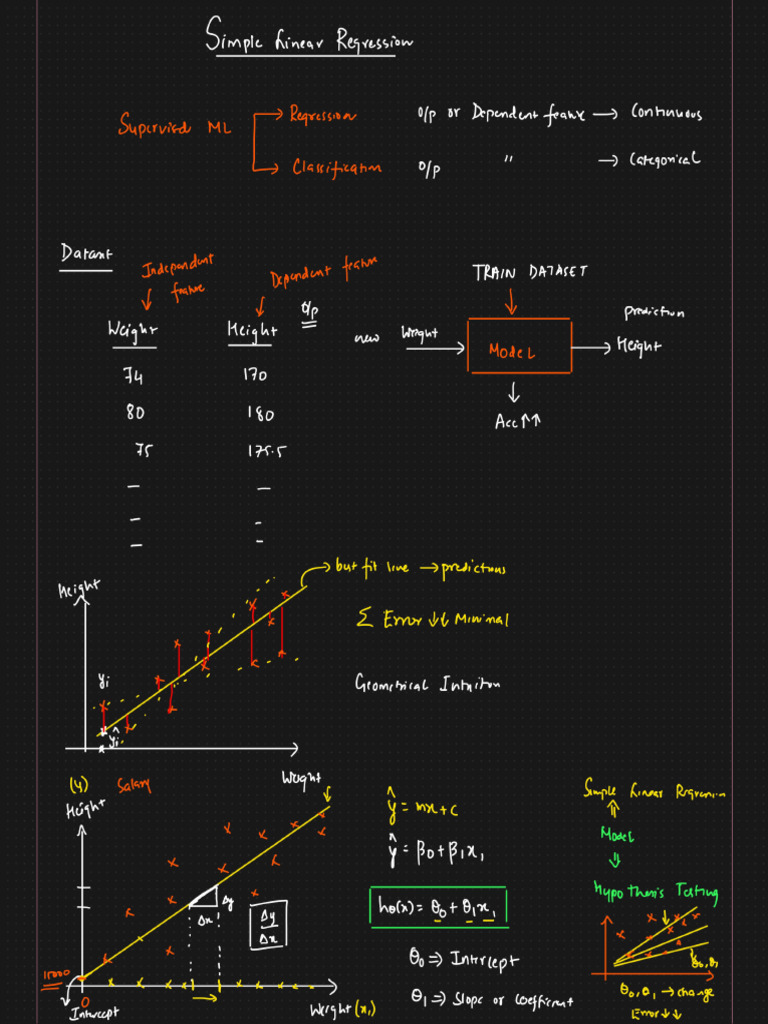 Simple Linear Regression
Supervised ML
Regression O/p or Dependent feature → Continuous
Classification O/p " → Categorical
Dataset
Independent feature
Dependent feature
O/p
Weight Height
74 170
80 180
75 175.5
— —
— —
— —
TRAIN DATASET
new Weight → Model → Height
prediction
Acc ↑↑
Height
best fit line → predictions
Σ Error ↓↓ Minimal
Geometrical Intuition
yi
ŷi
Weight
(y) Salary
Height
Δy
Δx
Δy
Δx
0
Intercept
Weight (x₁)
ŷ = mx + c
ŷ = β0 + β1x1
hθ(x) = θ0 + θ1x1
θ0 ⇒ Intercept
θ1 ⇒ Slope or coefficient
Simple Linear Regression
⇑
Model
⇓
Hypothesis Testing
θ0, θ1
θ0, θ1 → change
Error ↓↓